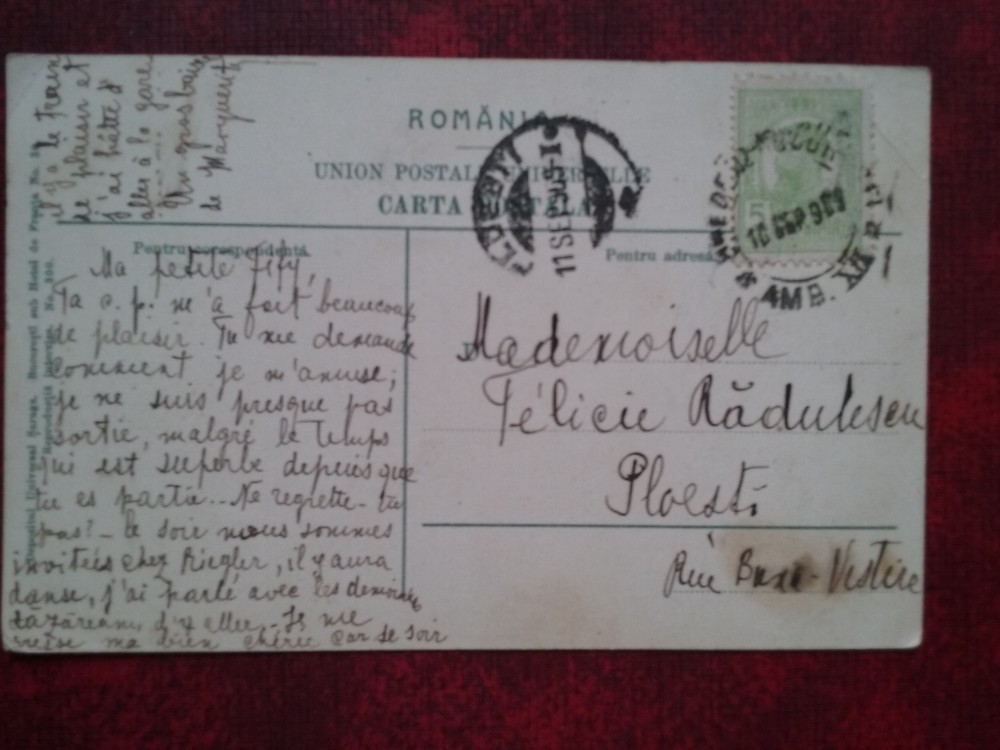 il y a le train
de plaisir et
j'ai hâte d'
aller à la gare
Un gros baiser
de Marguerite
ROMÂNIA
UNION POSTALE UNIVERSELLE
CARTA POSTALA
Pentru corespondență.
Pentru adresă
Ma petite Fify,
Ta c. p. m'a fait beaucoup
de plaisir. Tu me demande
comment je m'amuse;
je ne suis presque pas
sortie, malgré le temps
qui est superbe depuis que
tu es partie... Ne regrette-tu
pas? - Ce soir nous sommes
invitées chez Riegler, il y aura
danse, j'ai parlé avec les
Lăzăreanu d'y aller. - Je me
ma bien chérie car ce soir
Mademoiselle
Félicie Rădulescu
Ploesti
Rue Buna-Vestire
PLOESTI
11 SEP 909
10 SEP. 909
AMB.
5
Depozitul Universal Șaraga. București sub Hotel de Francia No.